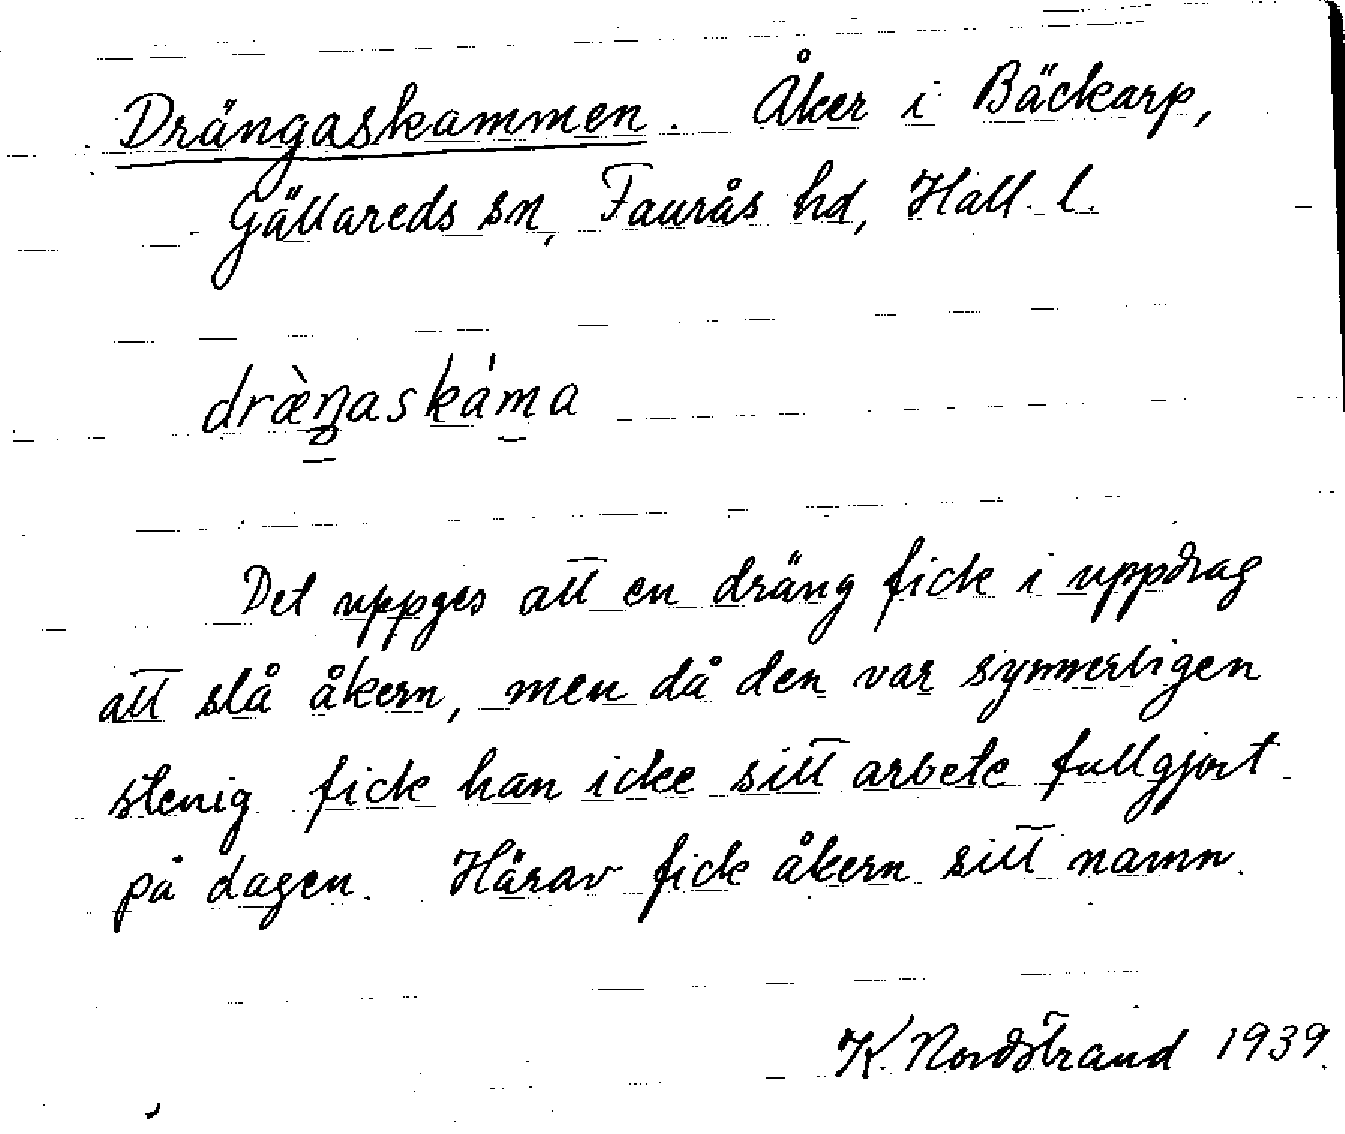 Drängaskammen. Åker i Bäckarp,
Gällareds sn, Faurås hd, Hall. l.
dræ̀ŋaskáma
Det uppges att en dräng fick i uppdrag
att slå åkern, men då den var synnerligen
stenig fick han icke sitt arbete fullgjort
på dagen. Härav fick åkern sitt namn.
K. Nordstrand 1939.